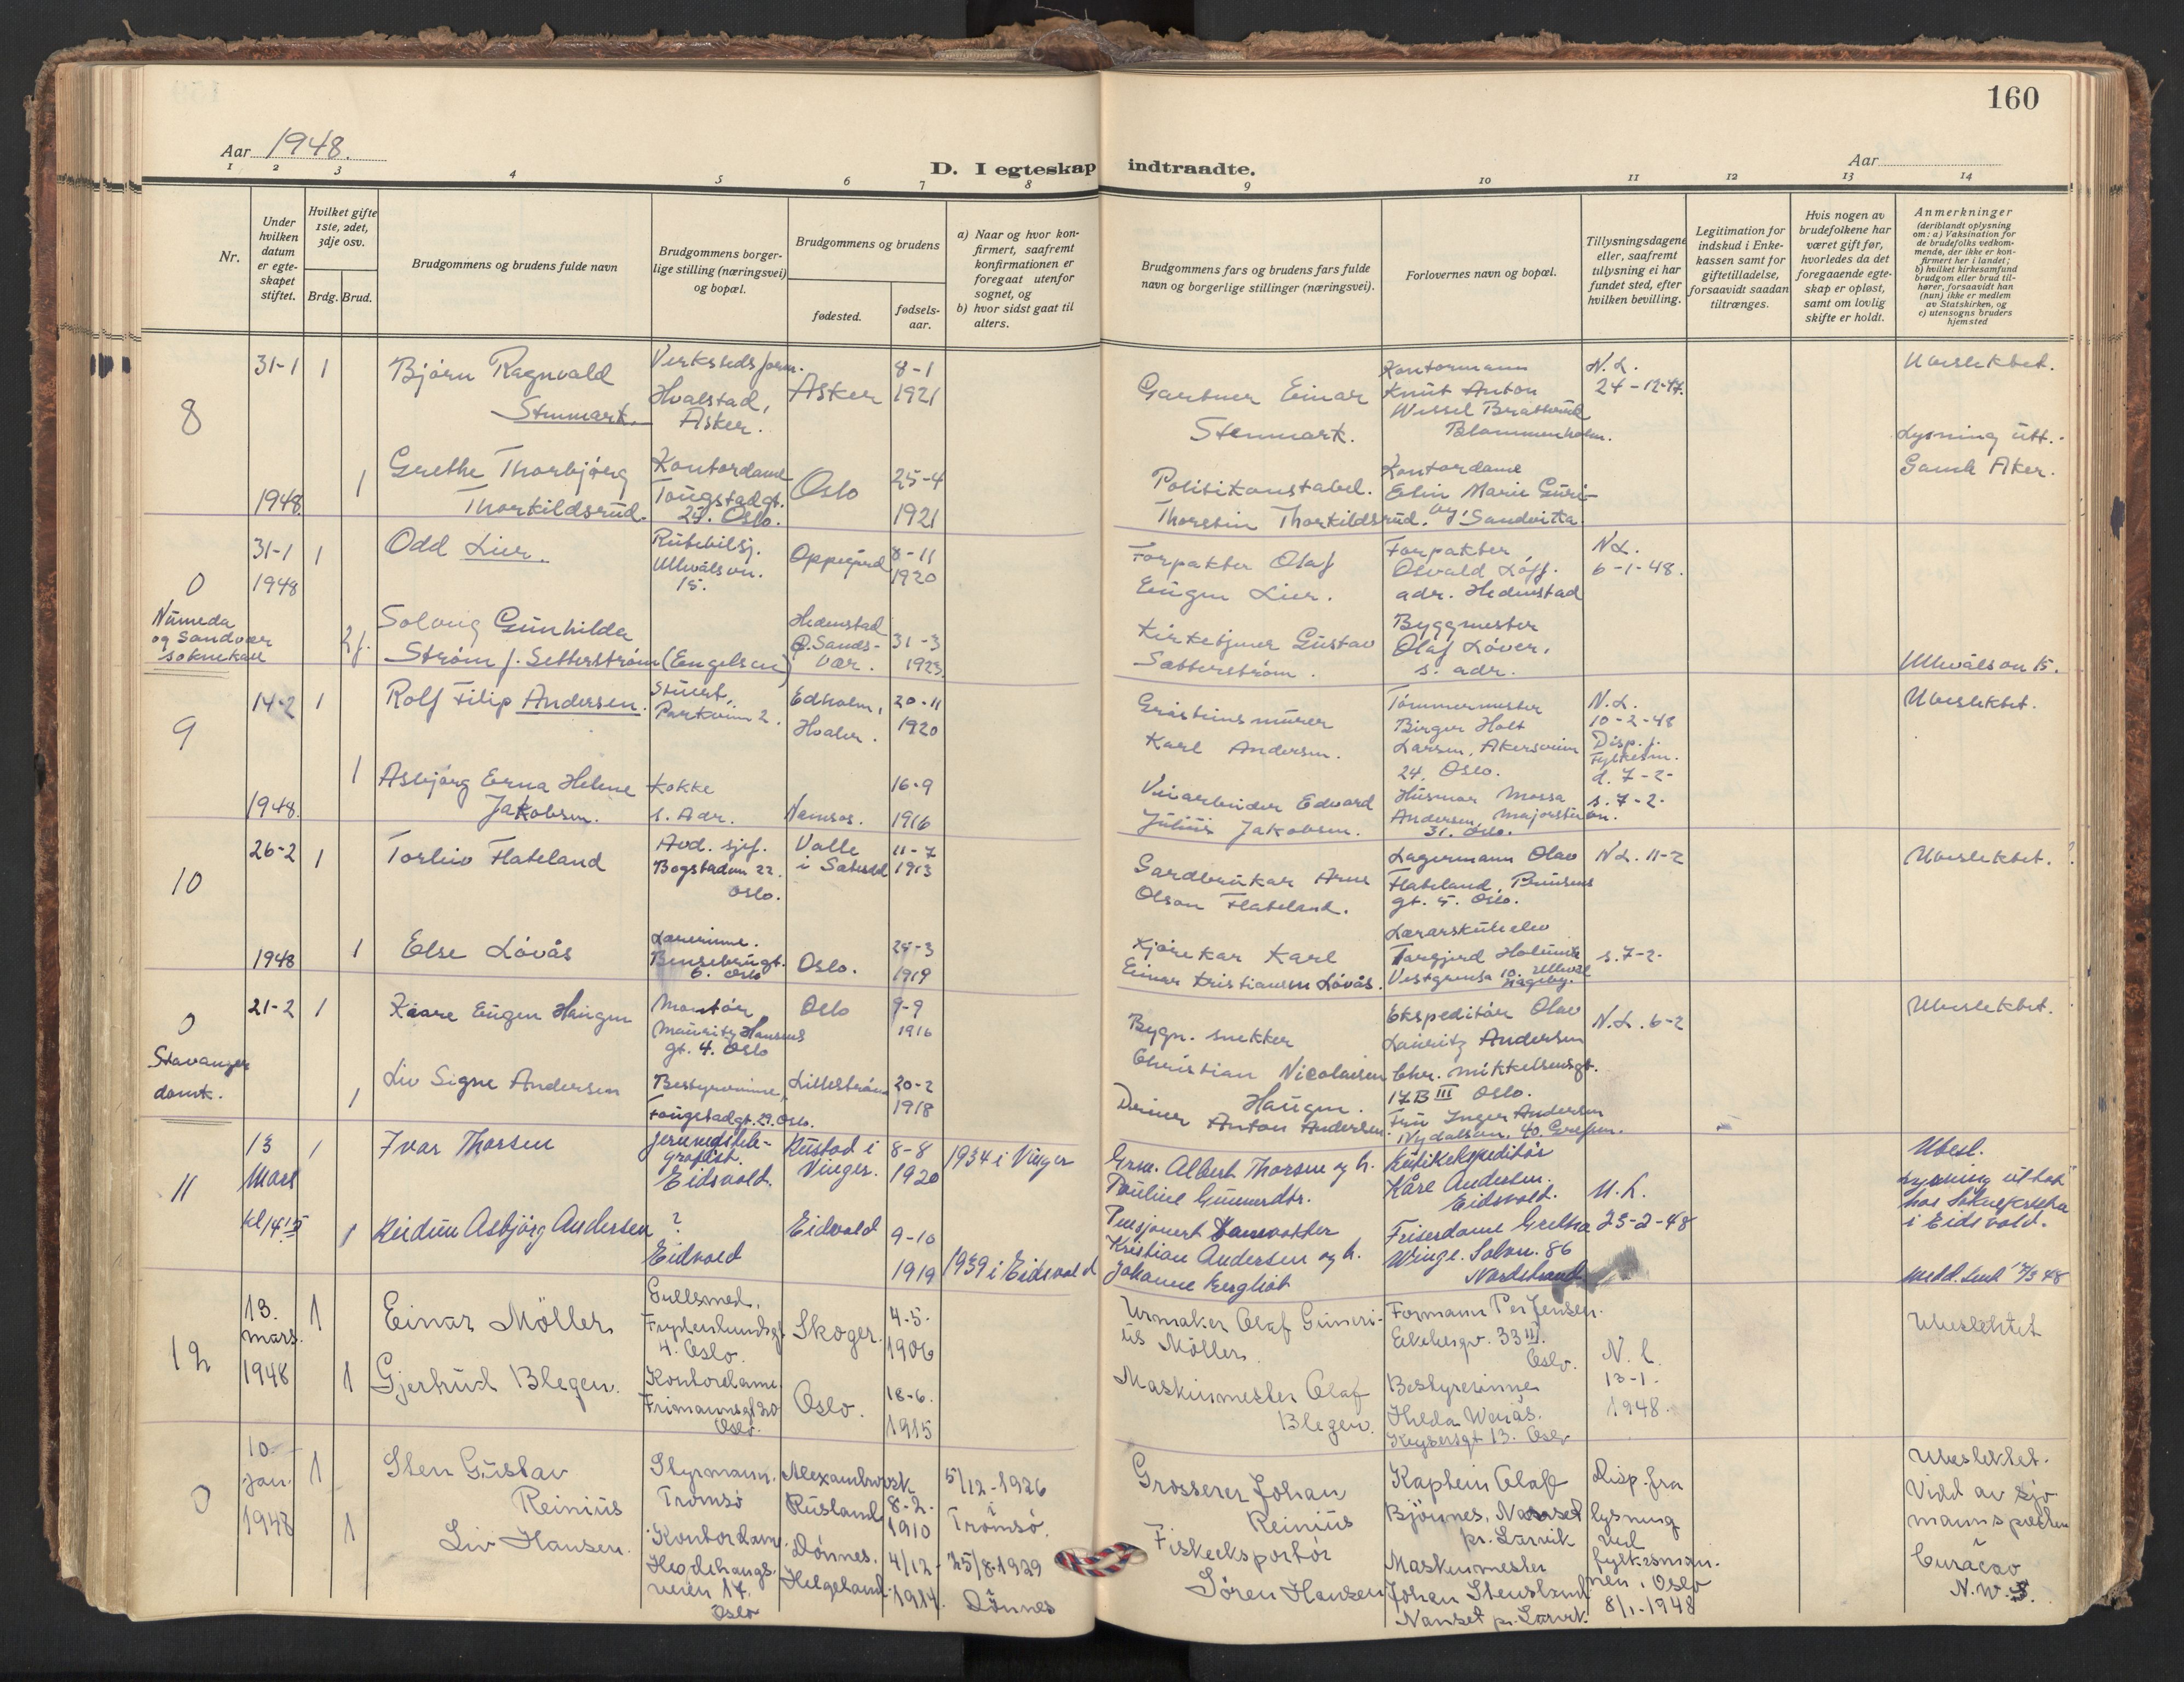 160
Aar 1948.
D. I egteskap indtraadte.
Aar
1 2 3 4 5 6 7 8 9 10 11 12 13 14
Nr.
Under hvilken datum er egteskapet stiftet.
Hvilket gifte 1ste, 2det, 3dje osv.
Brdg. Brud.
Brudgommens og brudens fulde navn
Brudgommens borgerlige stilling (næringsvei) og bopæl.
Brudgommens og brudens
fødested.
fødsels-aar.
a) Naar og hvor konfirmert, saafremt konfirmationen er foregaat utenfor sognet, og
b) hvor sidst gaat til alters.
Brudgommens fars og brudens fars fulde navn og borgerlige stillinger (næringsvei).
Forlovernes navn og bopæl.
Tillysningsdagene eller, saafremt tillysning ei har fundet sted, efter hvilken bevilling.
Legitimation for indskud i Enkekassen samt for giftetilladelse, forsaavidt saadan tiltrænges.
Hvis nogen av brudefolkene har været gift før, hvorledes da det foregaaende egteskap er opløst, samt om lovlig skifte er holdt.
Anmerkninger
(deriblandt oplysning om: a) Vaksination for de brudefolks vedkommende, der ikke er konfirmert her i landet;
b) hvilket kirkesamfund brudgom eller brud tilhører, forsaavidt han (hun) ikke er medlem av Statskirken, og
c) utensogns bruders hjemsted
8
31-1
1948
1
Bjørn Ragnvald
Stenmark.
Verkstedsform.
Hvalstad,
Asker.
Asker
8-1
1921
Gartner Einar
Stenmark.
Kontormann
Knut Anton
Wessel Bratterud
Blommenholm.
N.L.
24-12-47.
Ubeslektet.
1
Grethe Thorbjørg
Thorkildsrud.
Kontordame
Tougstadgt.
27. Oslo.
Oslo
25-4
1921
Politikonstabel.
Thorstein Thorkildsrud.
Kontordame
Elin Marie Guri-
Sandvika
Lysning utt.
Gamle Aker.
0
Numeda
og Sandvær
soknekall
31-1
1948
1
Odd Lier.
Rutebilsj.
Ullevålsvn.
15.
Oppegård
8-11
1920
Forpakter Olaf
Eugen Lier.
Forpakter
Osvald Løff.
adr. Hedenstad
N.L.
6-1-48.
2 f.
Solveig Gunhilda
Strøm f. Setterstrøm (Engelsen)
Hedenstad
p. Sands-
vær.
31-3
1923
Kirketjener Gustav
Sætterstrøm.
Byggmester
Olaf Løver,
s. adr.
Ullevålsvn 15.
9
14-2
1948.
1
Rolf Filip Andersen.
Stuert,
Parkveien 2.
Edholm,
Hvaler.
20-11
1920
Gråsteinsmurer
Karl Andersen.
Tømmermester
Birger Holt
Larsen, Akersveien
24, Oslo.
N.L.
10-2-48
Disp. f.
Fylkesm.
d. 7-2-
Ubeslektet.
1
Asbjørg Erna Helene
Jakobsen.
Kokke
s. Adr.
Namsos.
16-9
1916
Veiarbeider Edvard
Julius Jakobsen.
Husmor Mossa
Andersen, Majorstuvn.
31. Oslo.
s. 7-2-
10
26-2
1948
1
Torleiv Flateland
Avd. sjef.
Bogstadvn 22.
Oslo.
Valle
i Setesdal
11-7
1913
Gardbrukar Arne
Olson Flateland.
Lagermann Olav
Flateland,
gt. 5. Oslo.
N.L. 11-2
Ubeslektet.
1
Else Løvås
Lærerinne.
Bensebrugt.
6. Oslo
Oslo.
24-3
1919
Kjørekar Karl
Einar Kristiansen Løvås.
Lærarskuleelev
Targjerd
Vestgrensa 10. Ullevål
Hageby.
s. 7-2-
0
Stavanger
domk.
21-2
1
Kaare Eugen Haugen
Montør
Mauritz Hansens
gt. 4. Oslo
Oslo
9-9
1916
Bygn. snekker
Christian Nicolaisen
Haugen.
Ekspeditør Olav
Lauritz Andersen
Chr. Mikkelsensgt.
17B III Oslo.
N.L. 6-2
Ubeslektet.
1
Liv Signe Andersen
Bestyrerinne,
Fougstadgt. 29. Oslo.
Lillestrøm
20-2
1918
Anton Andersen
Fru Inger Andersen
Nydalsvn. 40. Grefsen.
11
13
Mars
kl 14 15
1
Ivar Thorsen
Jernvegstele-
grafist.
Eidsvold.
Rustad i
Vinger.
8-8
1920
1934 i Vinger
Grm. Albert Thorsen og h.
Pauline Gunnerdtr.
Kåre Andersen.
Eidsvold.
N.L.
Ubesl.
Lysning uttat
i Eidsvold.
1
Reidun Asbjørg Andersen
?
Eidvold
Eidvold
9-10
1919
1939 i Eidsvold
Pensjonert Banevokter
Kristian Andersen og h.
Johanne Bergliot
Friserdame Gretha
Winge. Solvn. 86
Nordstrand
23-2-48
medd. send 17/3 48
12
13.
mars.
1948
1
Einar Möller.
Gullsmed.
Frydenlundsgt
4. Oslo.
Skoger.
4-5.
1906
Urmaker Olaf Guneri-
us Möller.
Formann Per Jensen.
Ekebergv. 33 III.
Oslo.
N.L.
13-1.
1948.
Ubeslektet
1
Gjertrud Blegen.
Kontordame.
Frimannsgt 20
Oslo.
Oslo.
18-6.
1915
Maskinmester Olaf
Blegen.
Bestyrerinne
Hilda Weiås.
Keysersgt 13. Oslo
0
10.
jan.
1948
1
Sten Gustav
Reinius
Styrmann.
Tromsö
Alexandrovsk
Rusland
8-2-
1910
5/12-1926
i
Tromsö.
Grosserer Johan
Reinius
Kaptein Olaf
Björnes, Nanset
pr. Larvik
Disp. fra
lysning
ved
fylkesman-
nen i Oslo
8/1-1948
Ubeslektet.
Viid av sjø
mannspresten
Curaçao
N.W.I.
1
Liv Hansen.
Kontordame.
Hegdehaugs-
veien 17.
Oslo
Dönnes.
Helgeland.
4/12-
1914.
25/8-1929
Dönnes
Fiskeeksportör
Sören Hansen
Maskinmester
Johan Stensland
Nanset pr. Larvik.